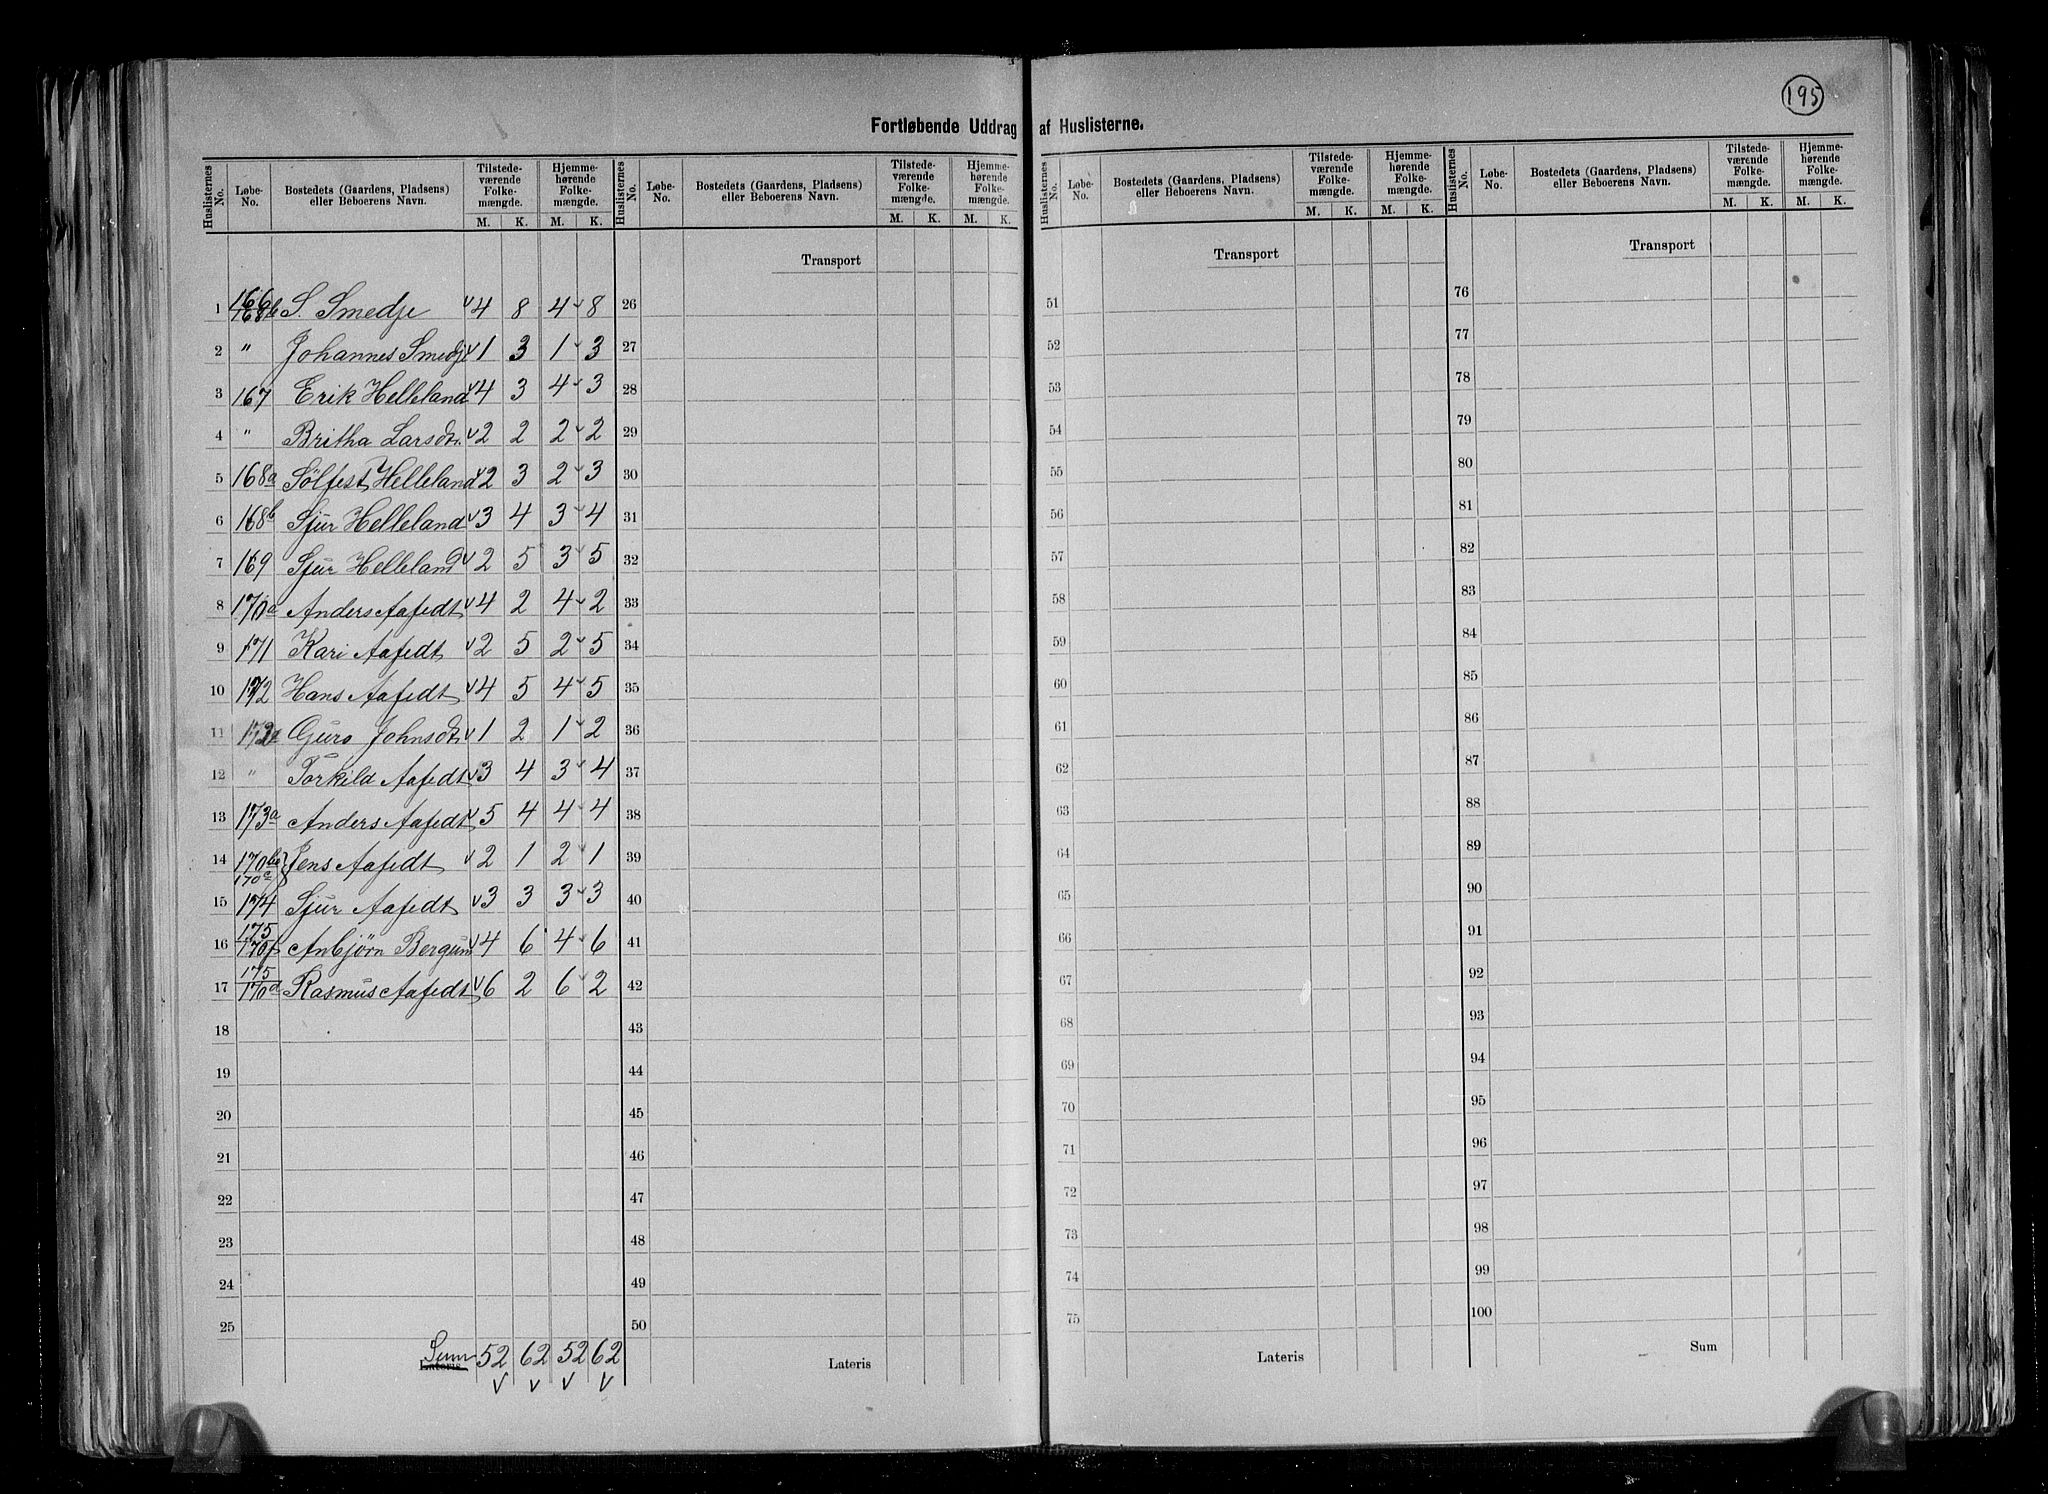 195
Fortløbende Uddrag af Huslisterne.
Huslisternes No. Løbe-No. Bostedets (Gaardens, Pladsens) eller Beboerens Navn. Tilstedeværende Folkemængde. M. K. Hjemmehørende Folkemængde. M. K.
Huslisternes No. Løbe-No. Bostedets (Gaardens, Pladsens) eller Beboerens Navn. Tilstedeværende Folkemængde. M. K. Hjemmehørende Folkemængde. M. K.
Huslisternes No. Løbe-No. Bostedets (Gaardens, Pladsens) eller Beboerens Navn. Tilstedeværende Folkemængde. M. K. Hjemmehørende Folkemængde. M. K.
Huslisternes No. Løbe-No. Bostedets (Gaardens, Pladsens) eller Beboerens Navn. Tilstedeværende Folkemængde. M. K. Hjemmehørende Folkemængde. M. K.
1 S. Smedje 4 8 4 8
2 " Johannes Smedje 1 3 1 3
3 167 Erik Helleland 4 3 4 3
4 " Britha Larsdt. 2 2 2 2
5 168a Sölfest Helleland 2 3 2 3
6 168b Sjur Helleland 3 4 3 4
7 169 Sjur Helleland 2 5 3 5
8 170a Anders Aafedt 4 2 4 2
9 171 Kari Aafedt 2 5 2 5
10 172 Hans Aafedt 4 5 4 5
11 Guro Johnsdt 1 2 1 2
12 " Torkild Aafedt 3 4 3 4
13 173a Anders Aafedt 5 4 4 4
14 170b 170c } Jens Aafedt 2 1 2 1
15 174 Sjur Aafedt 3 3 3 3
16 175 170f Anbjörn Bergum 4 6 4 6
17 175 170d Rasmus Aafedt 6 2 6 2
18
19
20
21
22
23
24
25
Lateris Sum 52 62 52 62
Transport
26
27
28
29
30
31
32
33
34
35
36
37
38
39
40
41
42
43
44
45
46
47
48
49
50
Lateris
Transport
51
52
53
54
55
56
57
58
59
60
61
62
63
64
65
66
67
68
69
70
71
72
73
74
75
Lateris
Transport
76
77
78
79
80
81
82
83
84
85
86
87
88
89
90
91
92
93
94
95
96
97
98
99
100
Sum